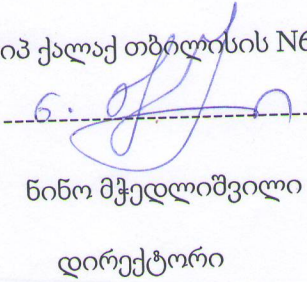 იპ ქალაქ თბილისის N6
ნ.
ნინო მჭედლიშვილი
დირექტორი